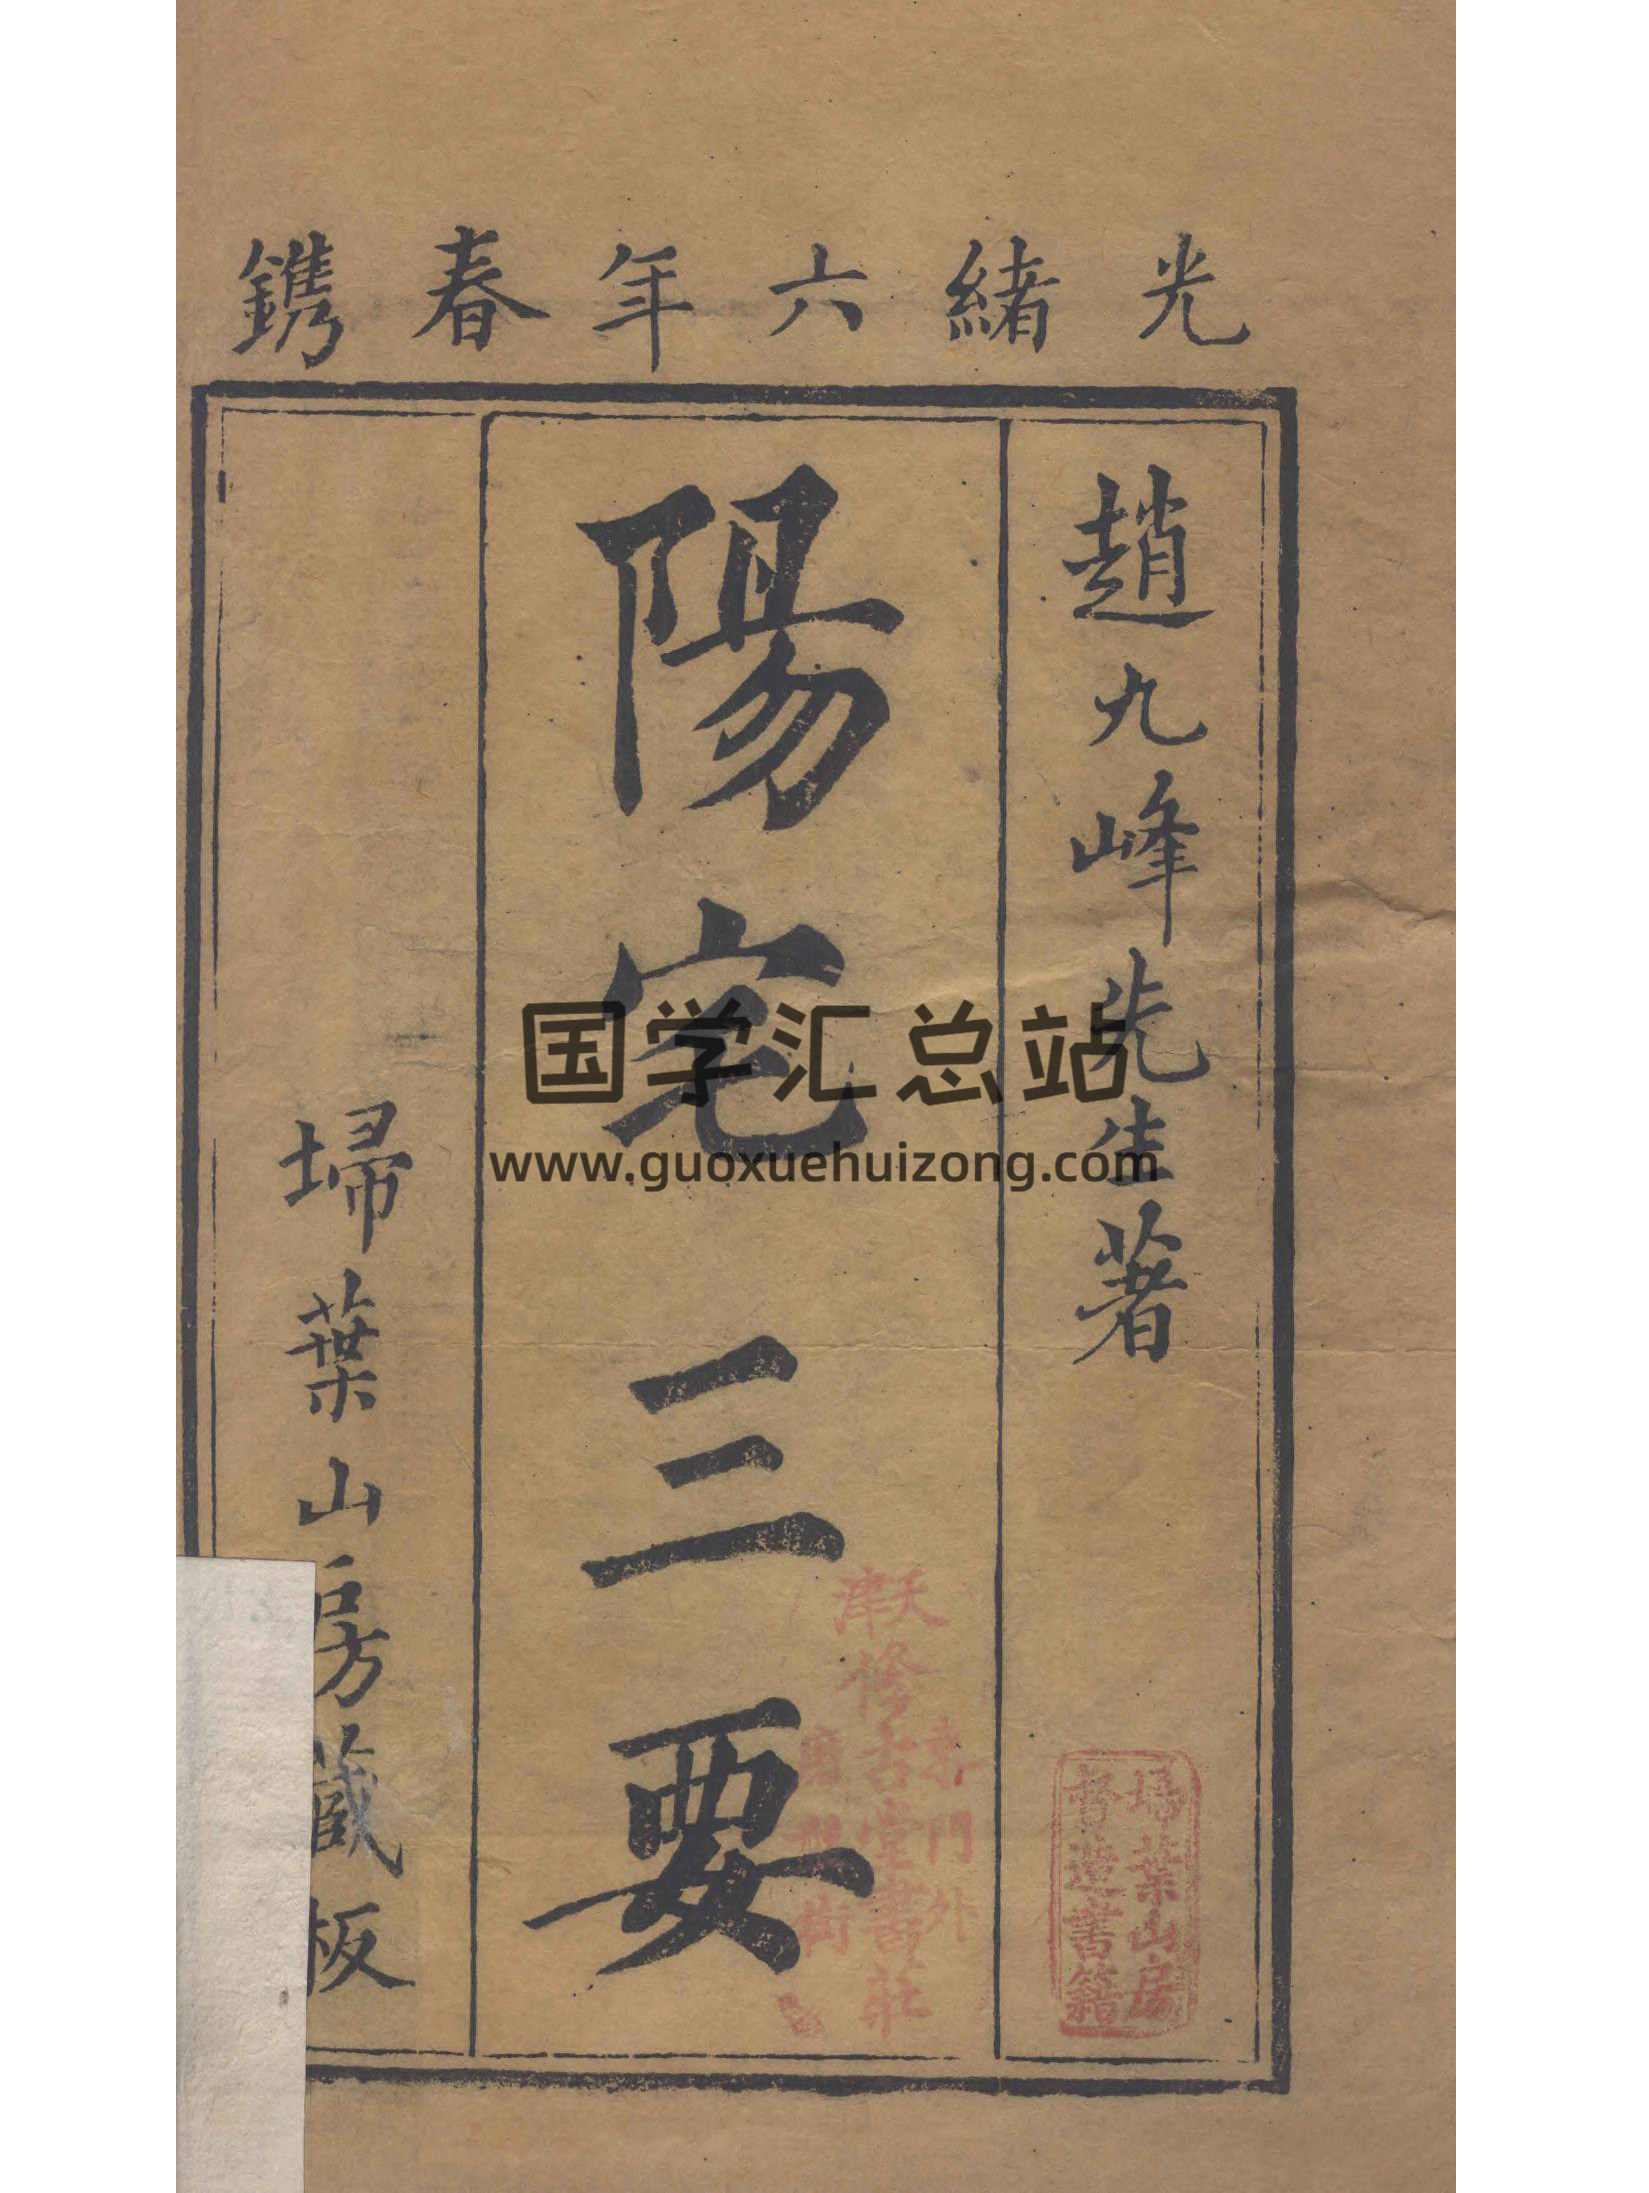 光緒六年春鐫
趙九峰先生著
陽宅三要
埽葉山房藏板
国学汇总站
www.guoxuehuizong.com
天津
修古堂書莊
東門外
街
埽葉山房
督造書籍